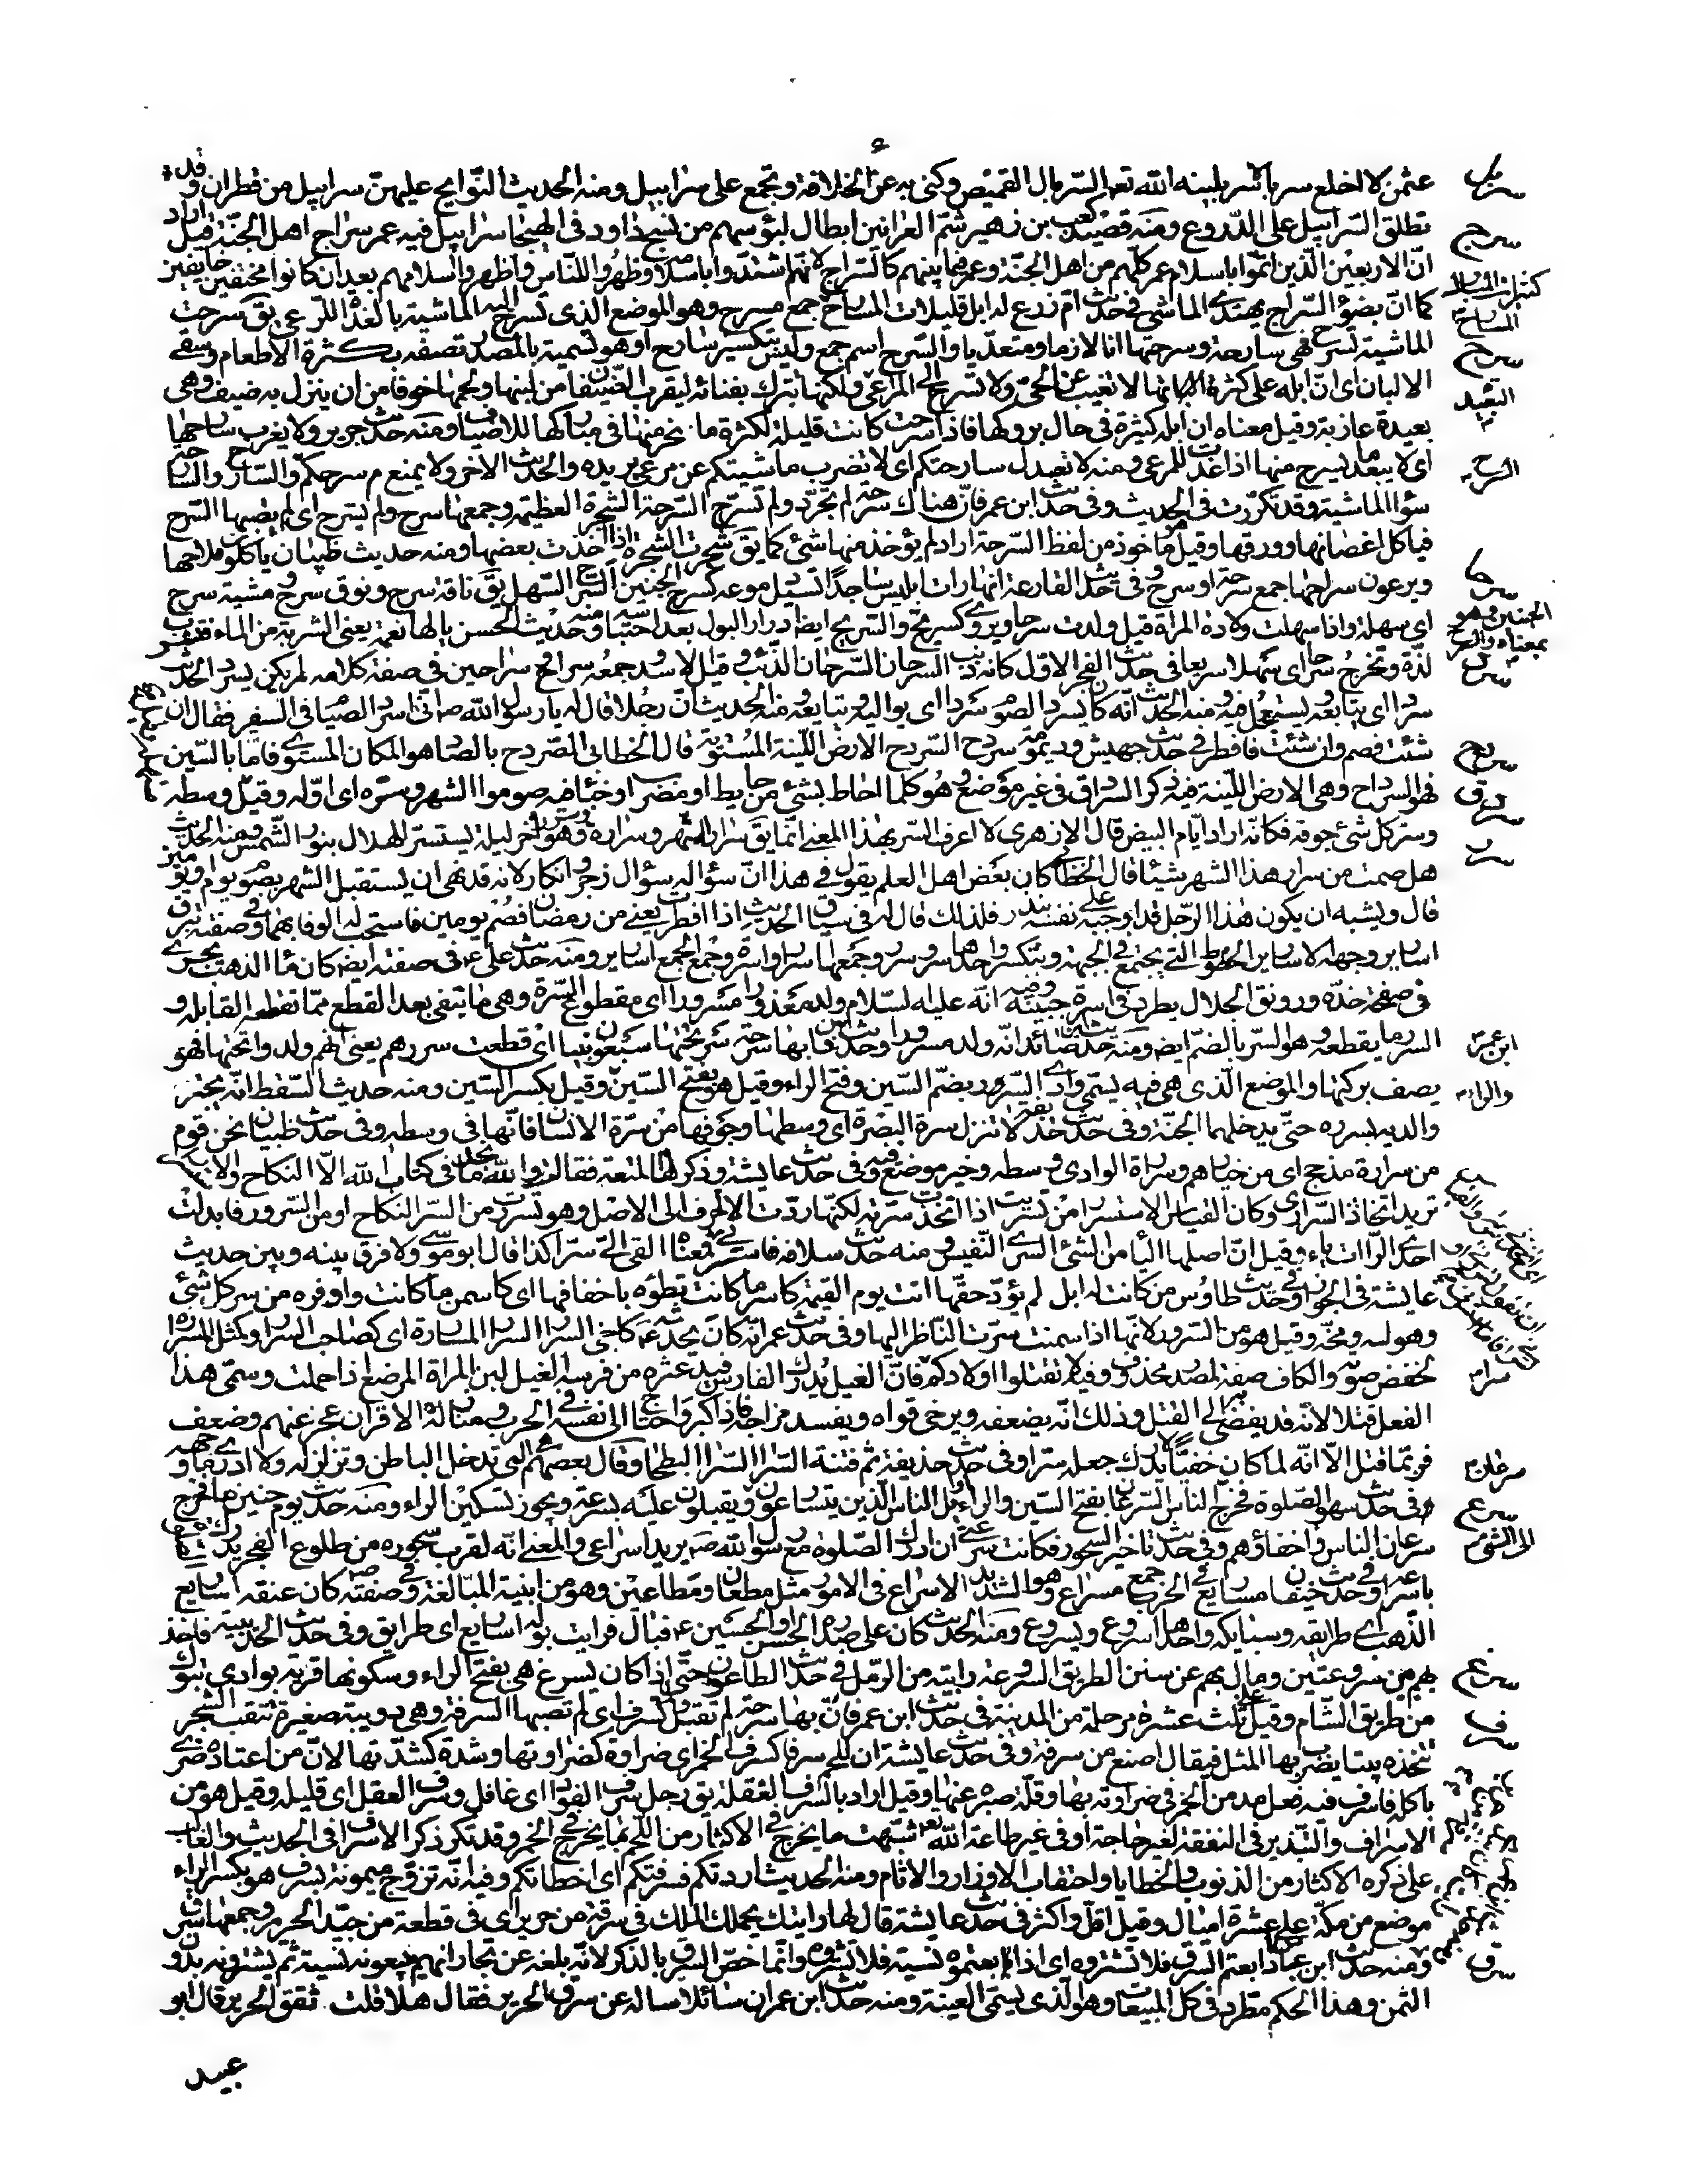 عثمن لا اخلع سربالا سربلنيه الله تعه السربال القميص وكنى به عن الخلافة ويجمع على سرابيل ومنه الحديث النوايح عليهن سرابيل من قطران وقد
تطلق السرابيل على الدروع ومنه قصيد كعب بن زهير شم العرانين ابطال لبؤسهم من نسج داود فى الهيجا سرابيل فيه عمر سراج اهل الجنة قيل اراد
ان الاربعين الذين اتموا باسلام عمر كلهم من اهل الجنة وعمر فيما بينهم كالسراج لانهم اشتدوا باسلامه وظهروا للناس واظهروا اسلامهم بعد ان كانوا مختفين خايفين
كما ان بضوء السراج يهتدى الماشى فى حديث ام زرع له ابل قليلات المسارح جمع مسرح وهو الموضع الذى تسرح اليه الماشية بالغداة للرعى يق سرحت
الماشية تسرح فهى سارحة وسرحتها انا لازما ومتعديا والسرح اسم جمع وليس بتكسير سارح او هو تسمية بالمصدر تصفه بكثرة الاطعام وسقى
الالبان اى ان ابله على كثرتها لا تغيب عن الحى ولا تسرح الى المراعى ولكنها تترك بفنائه ليقرب الضيفان من لبنها ولحمها خوفا من ان ينزل به ضيف وهى
بعيدة عازبة وقيل معناه ان ابله كثيرة فى حال بروكها فاذا سرحت كانت قليلة لكثرة ما نحر منها فى مباركها للاضياف ومنه حديث جرير ولا يعزب سارحها
اى لا يبعد ما يسرح منها اذا غدت للمرعى ومنه لا تعدل سارحتكم اى لا تصرف ماشيتكم عن مرعى تريده والحديث الاخر ولا يمنع سرحكم والسارح والسارحة
سواء الماشية وقد تكررت فى الحديث وفى حديث ابن عمر فان هناك سرحة لم تجرد ولم تسرح السرحة الشجرة العظيمة وجمعها سرح ولم يسرح اى لم يصبها السرح
فياكل اغصانها وورقها وقيل هو ماخوذ من لفظ السرحة اراد لم يؤخذ منها شئ كما يق شجرت الشجرة اذا اخذت بعضها ومنه حديث ظبيان ياكلون ملاحها
ويرعون سراحها جمع سرحة او سرح وفى حديث الفارعة انها رات ابليس ساجدا تسيل دموعه كسرح الجنين السرح السهل يق ناقة سرح ونوق سرح ومشية سرح
اى سهلة واذا سهلت ولادة المراة قيل ولدت سرحا ويروى كسريح والتسريح ايضا ادرار البول بعد احتباسه ومنه حديث الحسن يا لها نعمة يعنى الشربة من الماء تشرب
لذة وتخرج سرحا اى سهلا سريعا فى حديث الفجر الاول كانه ذنب السرحان السرحان الذئب وقيل الاسد وجمعه سراح وسراحين فى صفة كلامه لم يكن يسرد الحديث
سردا اى يتابعه ويستعجل فيه ومنه الحديث انه كان يسرد الصوم سردا اى يواليه ويتابعه ومنه الحديث ان رجلا قال له يا رسول الله صه انى اسرد الصيام فى السفر فقال ان
شئت فصم وان شئت فافطر فى حديث جهيش وديمومة سردح السردح الارض اللينة المستوية قال الخطابى الصردح بالصاد هو المكان المستوى فاما بالسين
فهو السرداح وهى الارض اللينة فيه ذكر السرادق فى غير موضع وهو كلما احاط بشئ من حايط او مضرب او خباء فيه صوموا الشهر وسره اى اوله وقيل وسطه
وسر كل شئ جوفه فكانه اراد ايام البيض قال الازهرى لا اعرف السر بهذا المعنى انما يق سرار الشهر وسراره وسرره وهو اخر ليلة يستسر الهلال بنور الشمس ومنه الحديث
هل صمت من سرار هذا الشهر شيئا قال الخطابى كان بعض اهل العلم يقول فى هذا ان سؤاله سؤال زجر وانكار لانه قد نهى ان يستقبل الشهر بصوم يوم او يومين
قال ويشبه ان يكون هذا الرجل قد اوجبه على نفسه بنذر فلذلك قال له فى سياق الحديث اذا افطرت يعنى من رمضان فصم يومين فاستحب له الوفا بهما وفى صفته تبرق
اسارير وجهه الاسارير الخطوط التى تجتمع فى الجبهة وتتكسر واحدها سر وسرر وجمعها اسرار واسرة وجمع الجمع اسارير ومنه حديث على ع فى صفته ايض كان ماء الذهب يجرى
فى صفحة خده ورونق الجلال يطرد فى اسرة جبينه وفيه انه عليه السلام ولد معذورا مسرورا اى مقطوع السرة وهى ما يبقى بعد القطع مما تقطعه القابلة و
السرر ما يقطعه وهو السر بالضم ايض ومنه حديث ابن صائد انه ولد مسرورا وحديث ابن عمر فان بها سرحة سر تحتها سبعون نبيا اى قطعت سررهم يعنى انهم ولدوا تحتها فهو
يصف بركتها والموضع الذى هى فيه يسمى وادى السرر بضم السين وفتح الراء وقيل هو بفتح السين والراء وقيل بكسر السين ومنه حديث السقط انه يجتر
والديه بسرره حتى يدخلهما الجنة وفى حديث حذيفة لا تنزل سرة البصرة اى وسطها وجوفها من سرة الانسان فانها فى وسطه وفى حديث ظبيان نحن قوم
من سرارة مذحج اى من خيارهم وسرارة الوادى وسطه وخير موضع فيه وفى حديث عايشة وذكر لها المتعة فقالت والله ما نجد فى كتاب الله الا النكاح والاستسرار
تريد اتخاذ السرارى وكان القياس الاستسراء من تسريت اذا اتخذت سرية لكنها ردت الحرف الى الاصل وهو تسررت من السر النكاح او من السرور فابدلت
احدى الراات ياء وقيل ان اصلها الياء من الشئ السرى النفيس ومنه حديث سلامة فاستسرنى فمعناه القى الى سرا كذا قال ابو موسى ولا فرق بينه وبين حديث
عايشة فى الجواز وفى حديث طاوس من كانت له ابل لم يؤد حقها اتت يوم القيمة كاسر ما كانت تطؤه باخفافها اى كاسمن ما كانت واوفره من سر كل شئ
وهو لبه ومخه وقيل هو من السرور لانها اذا سمنت سرت الناظر اليها وفى حديث عمر انه كان يحدثه ع كاخى السرار السرار المساررة اى كصاحب السرار او كمثل المساررة
لخفض صوته والكاف صفة لمصدر محذوف وفيه لا تقتلوا اولادكم فان الغيل يدرك الفارس فيدعثره من فرسه الغيل لبن المراة المرضع اذا حملت وسمى هذا
الفعل قتلا لانه قد يفضى الى القتل وذلك انه يضعفه ويرخى قواه ويفسد مزاجه فاذا كبر واحتاج الى نفسه فى الحرب ومنازلة الاقران عجز عنهم وضعف
فربما قتل الا انه لما كان خفيا لا يدرك جعله سرا وفى حديث حذيفة ثم فتنة السراء السراء البطحاء وقال بعضهم هى التى تدخل الباطن وتزلزله ولا ادرى ما وجهه
فى حديث سهو الصلوة فخرج سرعان الناس السرعان بفتح السين والراء اوائل الناس الذين يتسارعون ويقبلون عليه بسرعة ويجوز تسكين الراء ومنه حديث يوم حنين فخرج
سرعان الناس واخفاؤهم وفى حديث تاخير السحور فكانت سرعتى ان ادرك الصلوة مع رسول الله صه يريد اسراعى والمعنى انه لقرب سحوره من طلوع الفجر يدرك
باسراعه وفى حديث خيفان مساريع فى الحرب جمع مسراع وهو الشديد الاسراع فى الامور مثل مطعان ومطاعين وهو من ابنية المبالغة وفى صفته صه كان عنقه اساريع
الذهب اى طرايقه وسبايكه واحدها اسروع ويسروع ومنه الحديث كان على صدره الحسن او الحسين ع فبال فرايت بوله اساريع اى طرايق وفى حديث الحديبية فاخذ
بهم بين سروعتين ومال بهم عن سنن الطريق السروعة رابية من الرمل فى حديث الطاعون حتى اذا كان بسرغ هى بفتح الراء وسكونها قرية بوادى تبوك
من طريق الشام وقيل على ثلث عشرة مرحلة من المدينة فى حديث ابن عمر فان بها سرحة لم تعبل ولم تسرف اى لم تصبها السرفة وهى دويبة صغيرة تثقب الشجر
تتخذه بيتا يضرب بها المثل فيقال اصنع من سرفة وفى حديث عايشة ان للحم سرفا كسرف الخمر اى ضراوة كضراوتها وشدة كشدتها لان من اعتاده ضرى
باكله فاسرف فيه فعل مدمن الخمر فى ضراوته بها وقلة صبره عنها وقيل اراد بالسرف الغفلة يق رجل سرف الفؤاد اى غافل وسرف العقل اى قليله وقيل هو من
الاسراف والتبذير فى النفقة لغير حاجة او فى غير طاعة الله تعه شبهت ما يخرج فى الاكثار من اللحم بما يخرج فى الخمر وقد تكرر ذكر الاسراف فى الحديث والغالب
على ذكره الاكثار من الذنوب والخطايا واحتقاب الاوزار والاثام ومنه الحديث اردتكم فسرفتكم اى اخطاتكم وفيه انه تزوج ميمونة بسرف هو بكسر الراء
موضع من مكة على عشرة اميال وقيل اقل واكثر فى حديث عايشة قال لها رايتك يحملك الملك فى سرقة من حرير اى فى قطعة من جيد الحرير وجمعها سرق
ومنه حديث ابن عباس اذا بعتم السرق فلا تشتروه اى اذا بعتموه نسية فلا تشتروه وانما خص السرق بالذكر لانه بلغه عن تجار انهم يبيعونه نسية ثم يشترونه بدون
الثمن وهذا الحكم مطرد فى كل المبيعات وهو الذى يسمى العينة ومنه حديث ابن عمر ان سائلا ساله عن سرق الحرير فقال هلا قلت شقق الحرير قال ابو
عبيد
سربل
سرج
سرح
سرحا
سردح
سردق
سرر
سرع
سرغ
سرف
سرق